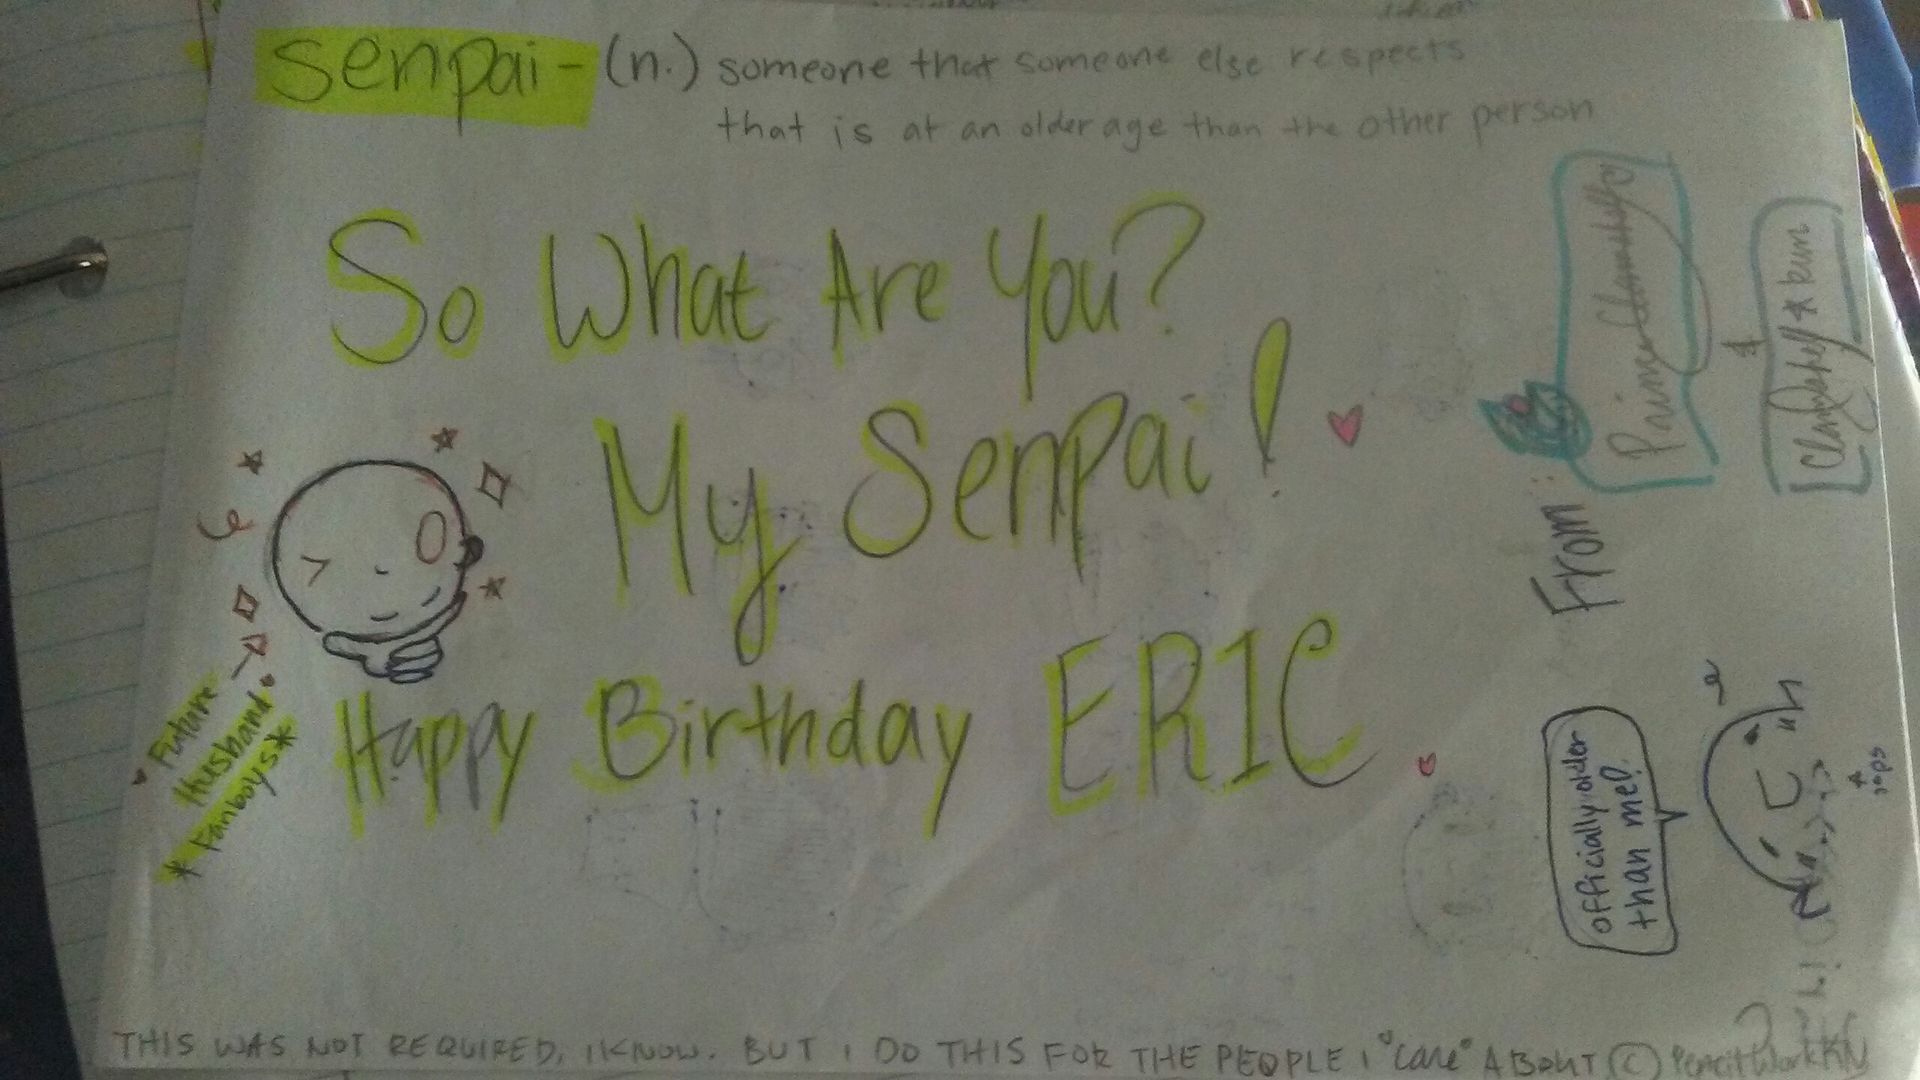 senpai - (n.) someone that someone else respects
that is at an older age than the other person
So What Are You?
My Senpai!
Happy Birthday ERIC
Future
Husband
* Fanboys *
From:
& 
officially older
than me?
THIS WAS NOT REQUIRED, I KNOW. BUT I DO THIS FOR THE PEOPLE I "Care" ABOUT ©